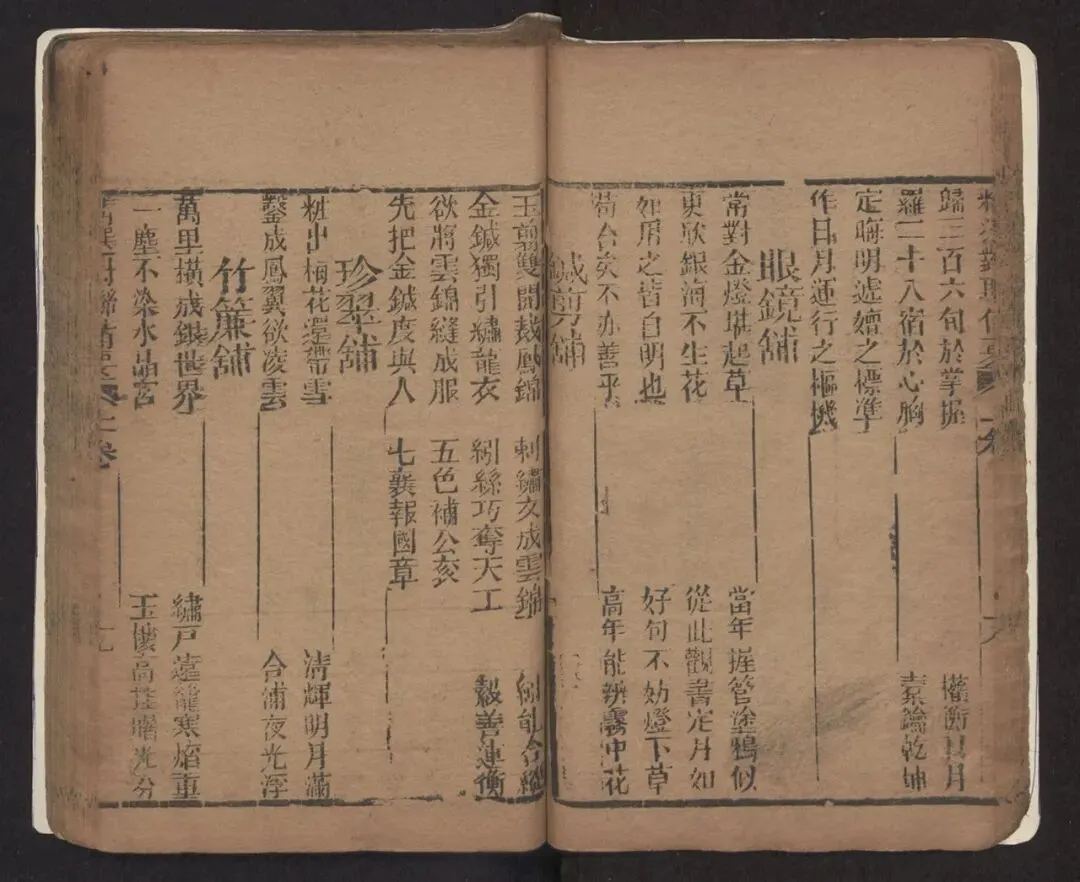 歸三百六旬於掌握
權衡日月
羅二十八宿於心胸
橐籥乾坤
定晦明遞嬗之標準
作日月運行之樞機
眼鏡舖
常對金燈堪起草
當年握管塗鴉似
更欣銀海不生花
從此觀書定月如
如用之皆自明也
好句不妨燈下草
苟合矣不亦善乎
高年能辨霧中花
鍼剪舖
玉剪雙開裁鳳錦
刺繡文成雲錦
金鍼獨引繡龍衣
紉絲巧奪天工
縠善連衡
欲將雲錦縫成服
五色補公衮
先把金鍼度與人
七襄報國章
珍翠舖
粧出梅花還帶雪
清輝明月滿
鑿成鳳翼欲凌雲
合浦夜光浮
竹簾舖
萬里橫成銀世界
繡戶遠籠寒焰重
一塵不染水晶宮
玉樓高逢曙光分
上卷
九